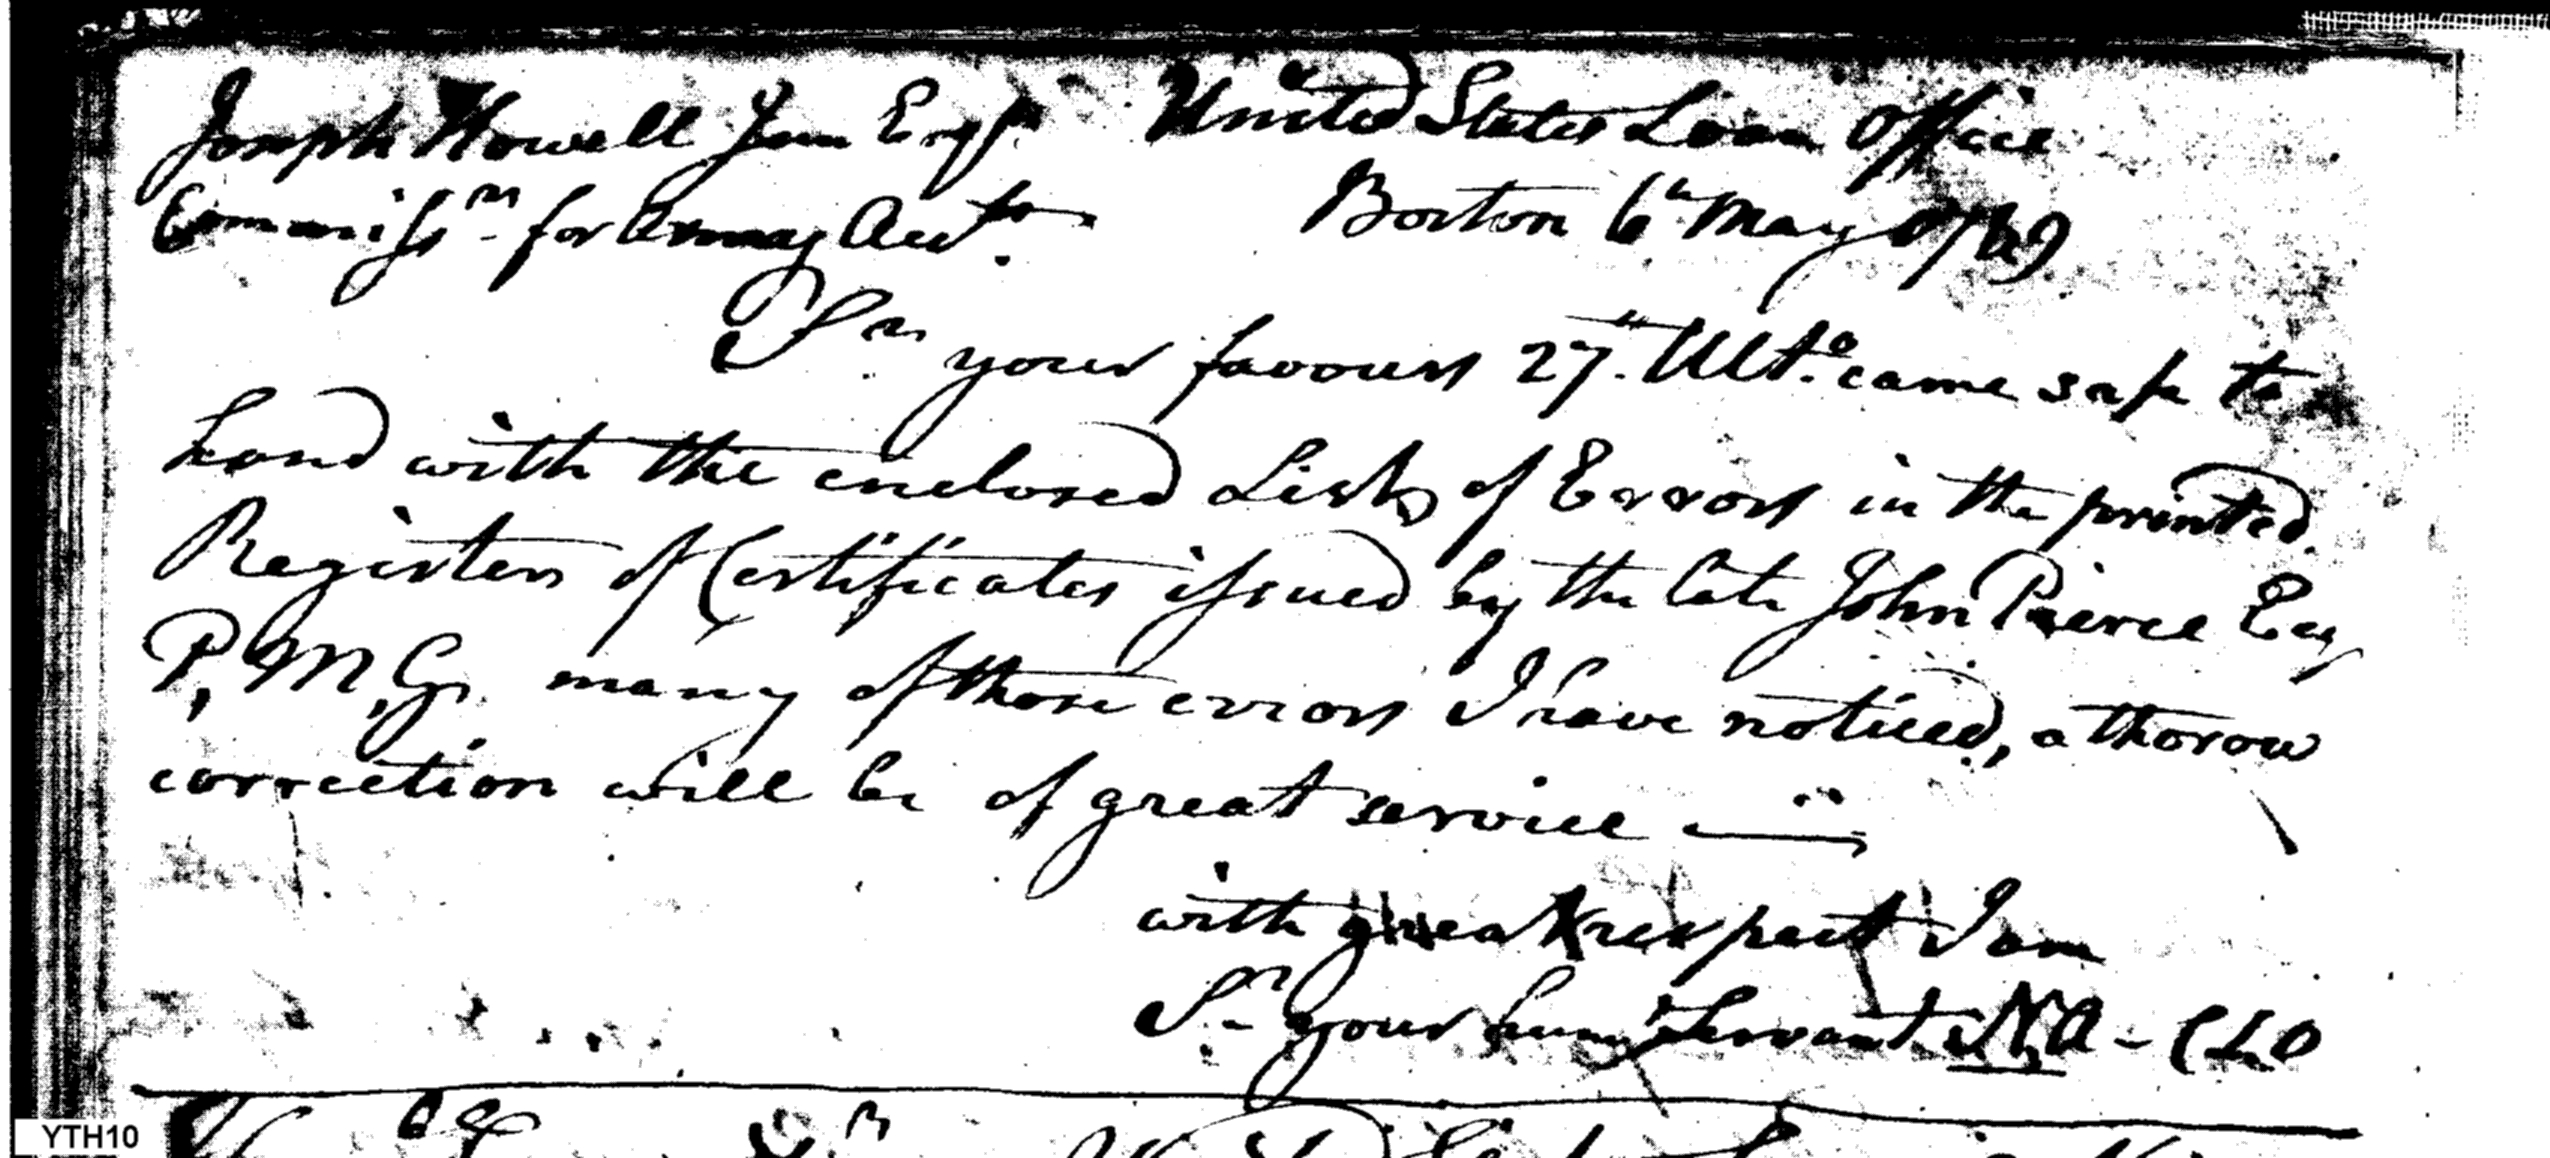 Joseph Howell Jun Esqr United States Loan Office
Commissr for Army Accts. Boston 6th May 1789
Sir your favours 27th Ulto. came safe to
hand with the enclosed List of Errors in the printed
Registers of Certificates issued by the late John Pierce Esq
P, M, G. many of those errors I have noticed, a thorow
correction will be of great service
with great respect I am
Sr your humb Servant N.A - CLO
YTH10